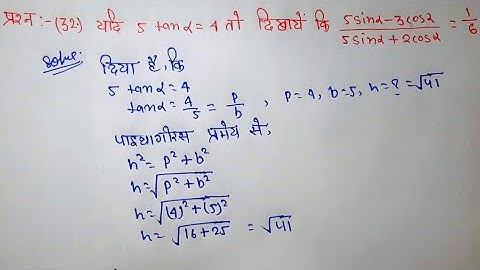 प्रश्न :- (32) यदि 5 tanα = 4 तो दिखायें कि (5sinα - 3cosα)/(5sinα + 2cosα) = 1/6
Solve:
दिया है, कि
5 tanα = 4
tanα = 4/5 = p/b , p = 4, b = 5, h = ? = √41
पाइथागोरस प्रमेय से,
h² = p² + b²
h = √(p² + b²)
h = √((4)² + (5)²)
h = √(16 + 25) = √41